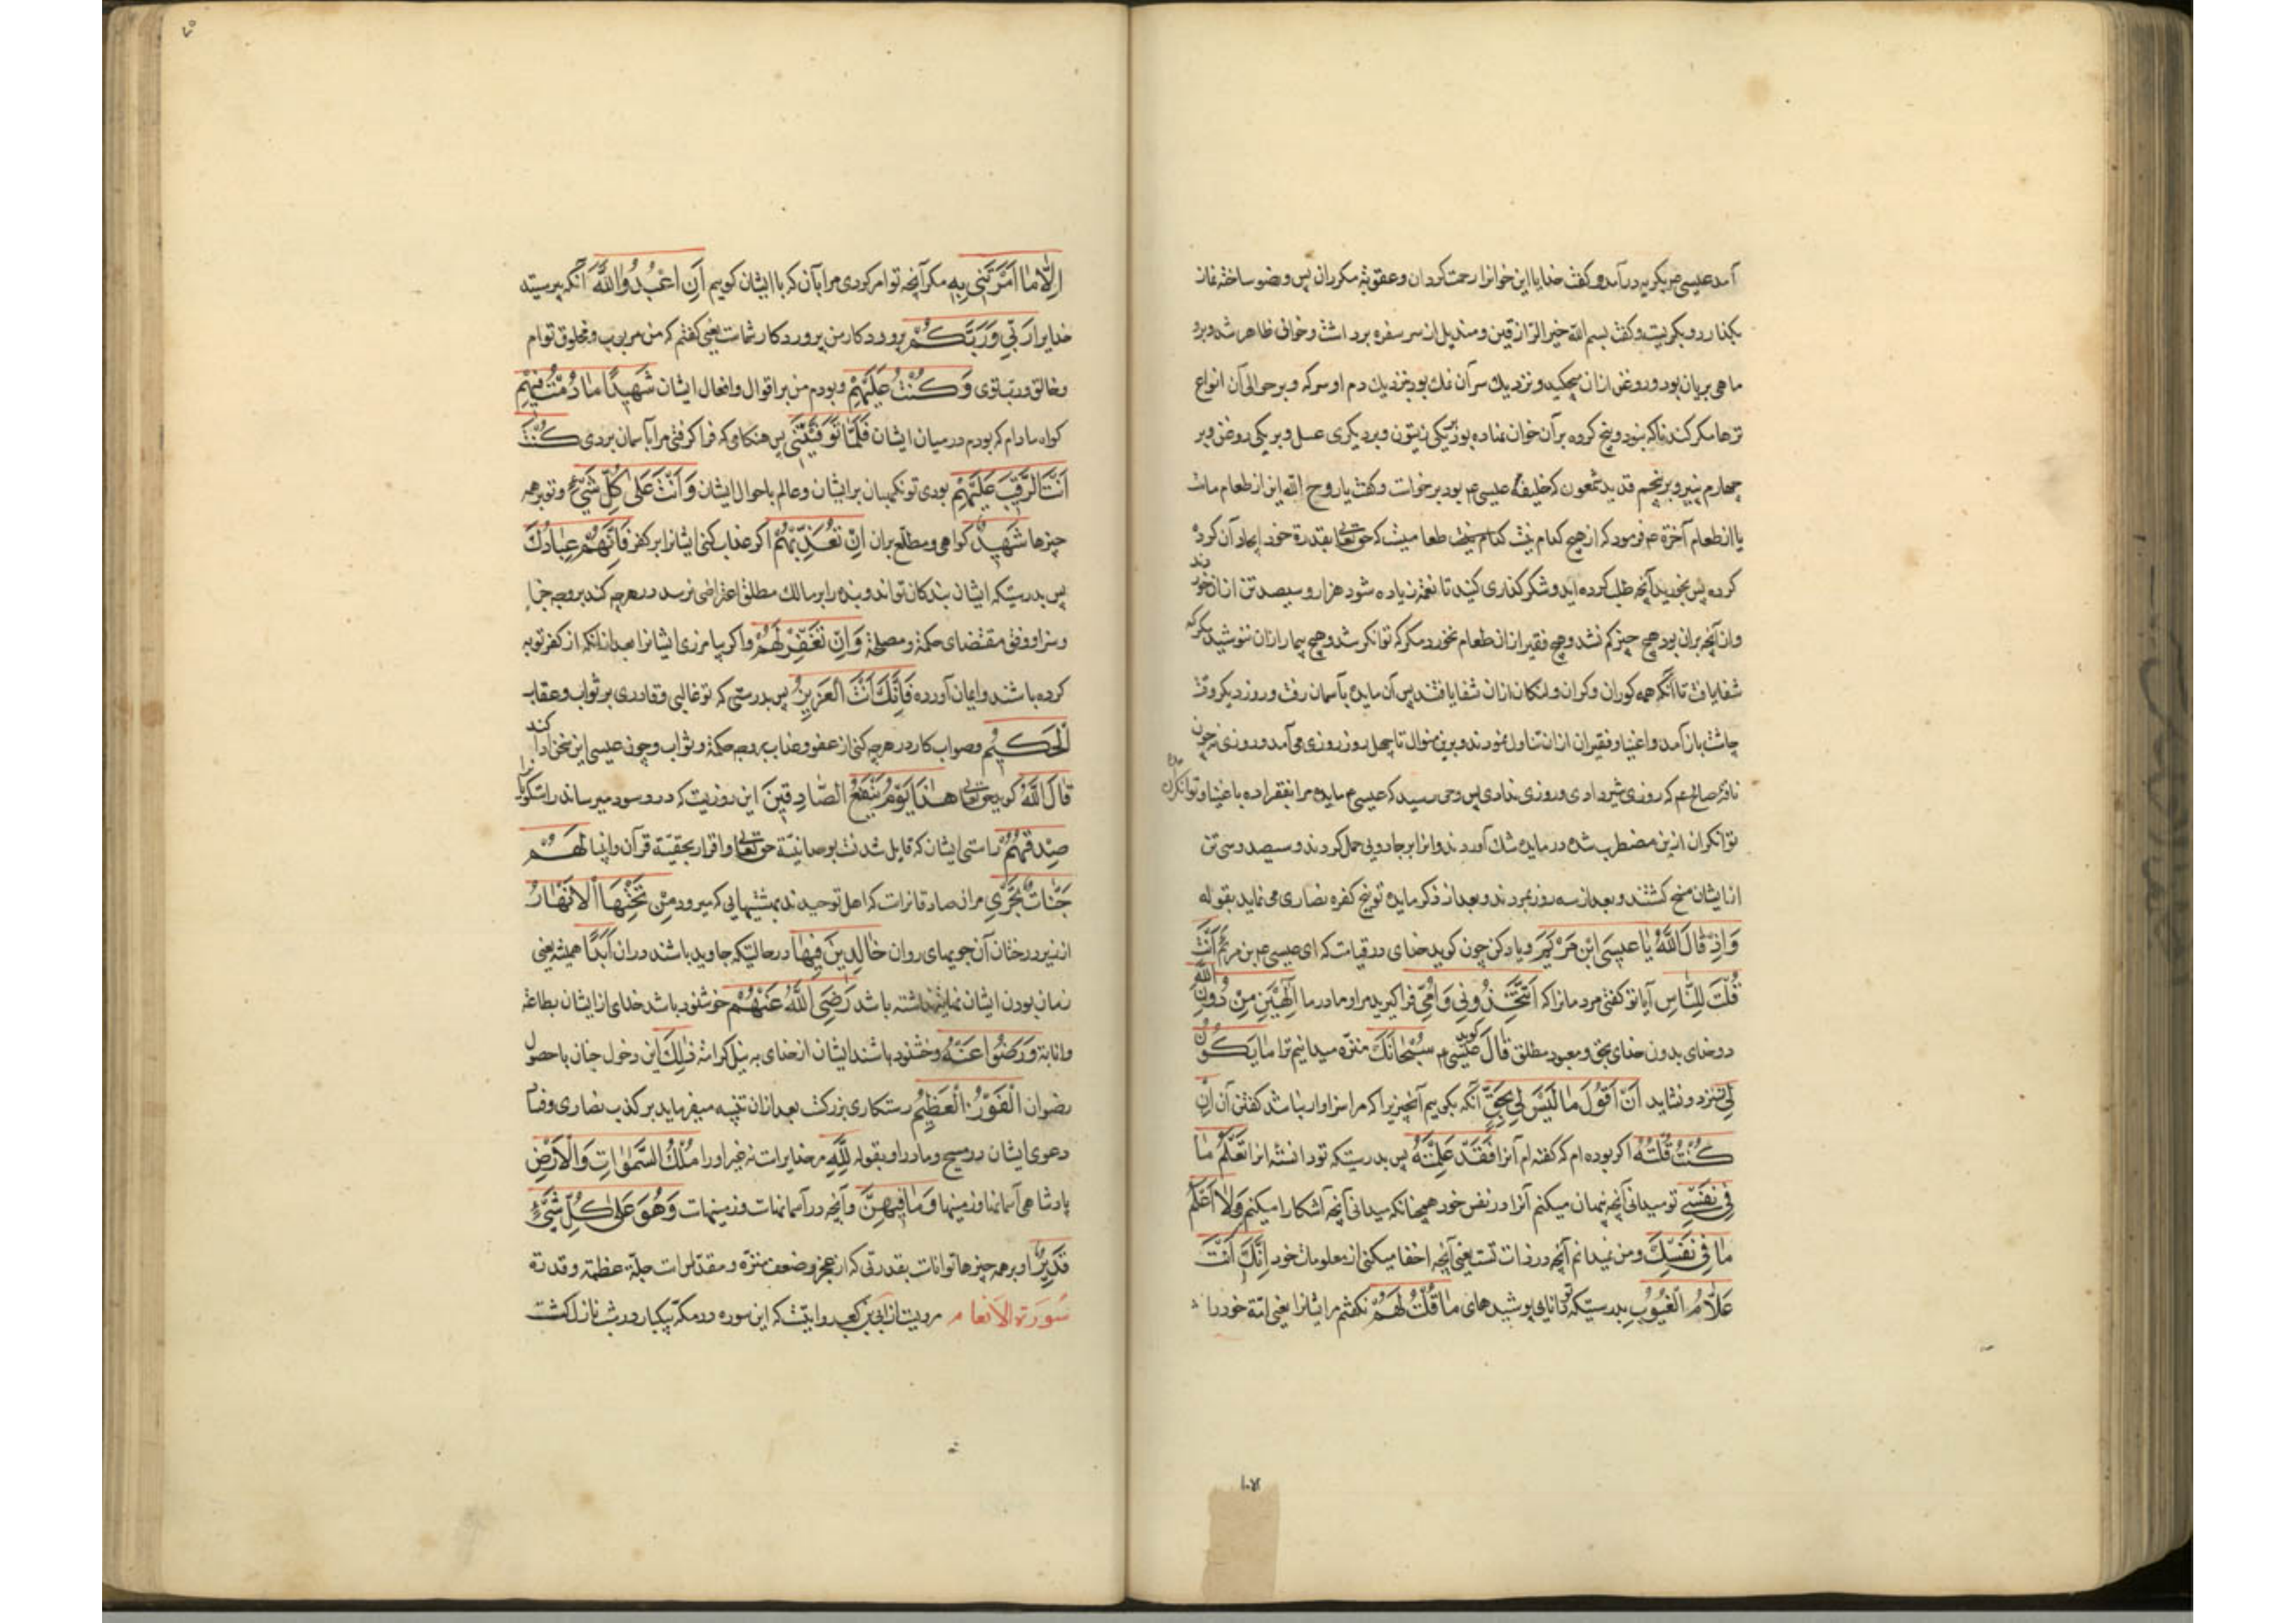 آمد عیسی عم بگریه درآمد و کفت خدایا این خوانرا رحمت کردان و عقوبة مکردان پس وضو ساخته نماز
بکذارد و بکریست و کفت بسم الله خیر الرازقین و مندیل از سر سفره برداشت و خوانی ظاهر شد و برو
ماهی بریان بود و روغن ازان میچکید و نزدیك سر آن نمك بود نزدیك دم او سرکه و بر حوالی آن انواع
ترها مکر کندنا که بنود و پنج کرده بر آن خوان نهاده بود بر یکی زیتون و بر دیکری عسل و بر یکی روغن و بر
چهارم پنیر و بر پنجم قدید شمعون که خلیفهٔ عیسی عم بود برخاست و کفت یا روح الله این از طعام ماست
یا از طعام آخرة عم فرمود که از هیچ کدام نیست طعامیست که حق تعالی بقدرة خود ایجاد آن کرده
کرده پس بخورید آنچه طلب کرده اید و شکر کذاری کنید تا نعمة زیاده شود هزار و سیصد تن ازان خوردند
و ازانچه بران بود هیچ چیز کم نشد و هیچ فقیر ازان طعام نخورد مکر که توانکر شد و هیچ بیمار ازان ننوشید مکر که
شفا یافت تا آنکه همه کوران و کران و لنکان ازان شفا یافتند پس آن مایده بآسمان رفت و روز دیکر وقت
چاشت باز آمد و اغنیا و فقیران ازان تناول نمودند و برین منوال تا چهل روز روزی می آمد و روزی نه چون
ناقهٔ صالح عم که روزی شیر دادی و روزی ندادی پس وحی رسید که عیسی عم مایده مرا بفقرا ده با غنیا و توانکران مده
توانکران ازین مضطرب شده در مایده شك آوردند و انرا بر جادویی حمل کردند و سیصد و سی تن
از ایشان مسخ کشتند و بعد از سه روز بمردند و بعد از ذکر مایده توبیخ کفره نصاری می نماید بقوله
وَاِذْ قَالَ اللّٰهُ يَا عِيسَى ابْنَ مَرْيَمَ و یاد کن چون کوید خدای در قیامت که ای عیسی عم بن مریم ءَاَنْتَ
قُلْتَ لِلنَّاسِ آیا تو کفتی مردمانرا که اتَّخِذُونِي وَاُمِّيَ فرا کیرید مرا و مادر مرا اِلٰهَيْنِ مِنْ دُونِ اللّٰهِ
دو خدای بدون خدای بحق و معبود مطلق قَالَ کوید عیسی عم سُبْحَانَكَ منزه میدانیم ترا مَا يَكُونُ
لِي نسزد و نشاید اَنْ اَقُولَ مَا لَيْسَ لِي بِحَقٍّ آنکه بکوییم آنچیز را که مرا سزاوار نباشد کفتن آن اِنْ
كُنْتُ قُلْتُهُ اکر بوده ام که کفته ام آنرا فَقَدْ عَلِمْتَهُ پس بدرستیکه تو دانسته انرا تَعْلَمُ مَا
فِي نَفْسِي تو میدانی آنچه پنهان میکنم آنرا در نفس خود همچنانکه میدانی آنچه آشکارا میکنم وَلَا اَعْلَمُ
مَا فِي نَفْسِكَ و من نمیدانم آنچه در ذات تست یعنی آنچه اخفا میکنی از معلومات خود اِنَّكَ اَنْتَ
عَلَّامُ الْغُيُوبِ بدرستیکه تو دانایی پوشیدهای مَا قُلْتُ لَهُمْ نکفتم مر ایشانرا یعنی امة خود را
۱۰۷
۷۵
اِلَّا مَا اَمَرْتَنِي بِهِ مکر آنچه تو امر کردی مرا بآن که با ایشان کویم اَنِ اعْبُدُوا اللّٰهَ آنکه بپرستید
خدایرا رَبِّي وَرَبَّكُمْ پروردکار من پروردکار شماست یعنی کفتم که من مربوب و مخلوق توام
و خالق و رب تاوی وَكُنْتُ عَلَيْهِمْ و بودم من بر اقوال و افعال ایشان شَهِيدًا مَا دُمْتُ فِيهِمْ
کواه مادام که بودم در میان ایشان فَلَمَّا تَوَفَّيْتَنِي پس هنکامی که فرا کرفتی مرا بآسمان بردی كُنْتَ
اَنْتَ الرَّقِيبَ عَلَيْهِمْ بودی تو نکهبان بر ایشان و عالم باحوال ایشان وَاَنْتَ عَلَى كُلِّ شَيْءٍ و تو بر همه
چیزها شَهِيدٌ کواهی و مطلع بران اِنْ تُعَذِّبْهُمْ اکر عذاب کنی ایشانرا بر کفر فَاِنَّهُمْ عِبَادُكَ
پس بدرستیکه ایشان بندکان تواند و بنده را بر مالك مطلق اعتراضی نرسد در هرچه کند بر وجه جزا
و سزا و وفق مقتضای حکمة و مصلحة وَاِنْ تَغْفِرْ لَهُمْ و اکر بیامرزی ایشانرا بعد ازانکه از کفر توبه
کرده باشند و ایمان آورده فَاِنَّكَ اَنْتَ الْعَزِيزُ پس بدرستی که تو غالبی و قادری بر ثواب و عقاب
الْحَكِيمُ و صواب کار در هرچه کنی از عفو و عذاب بر وجه حکمة و ثواب و چون عیسی این سخن ادا کند
قَالَ اللّٰهُ کوید حق تعالی هٰذَا يَوْمُ يَنْفَعُ الصَّادِقِينَ این روزیست که درو سود میرساند راستکویانرا
صِدْقُهُمْ راستی ایشان که قایل شدند بوحدانیة حق تعالی و اقرار بحقیة قرآن و انبیا لَهُمْ
جَنَّاتٌ تَجْرِي مرانصادقانراست که اهل توحیدند بهشتهایی که میرود مِنْ تَحْتِهَا الْاَنْهَارُ
از زیر درختان آن جویهای روان خَالِدِينَ فِيهَا درحالتیکه جاوید باشند دران اَبَدًا همیشه یعنی
زمان بودن ایشان نهایة نداشته باشد رَضِيَ اللّٰهُ عَنْهُمْ خوشنود باشد خدای از ایشان بطاعة
و انابة وَرَضُوا عَنْهُ و خشنود باشند ایشان از خدای به نیل کرامة ذٰلِكَ این دخول جنان با حصول
رضوان الْفَوْزُ الْعَظِيمُ رستکاری بزرکست بعد ازان تنبیه میفرماید بر کذب نصاری و فساد
دعوی ایشان در مسیح و مادر او بقوله لِلّٰهِ مر خدایراست نه غیر او را مُلْكُ السَّمٰوَاتِ وَالْاَرْضِ
پادشاهی آسمانها و زمینها وَمَا فِيهِنَّ و آنچه در آسمانهاست و زمینهاست وَهُوَ عَلٰى كُلِّ شَيْءٍ
قَدِيرٌ او بر همه چیزها تواناست بقدرتی که از عجز و ضعف منزه و مقدس است جلة عظمته و قدرته
سُورَة الاَنعام مرویست از ابی بن کعب روایتست که این سوره در مکه بیکبار در شب نازل کشت